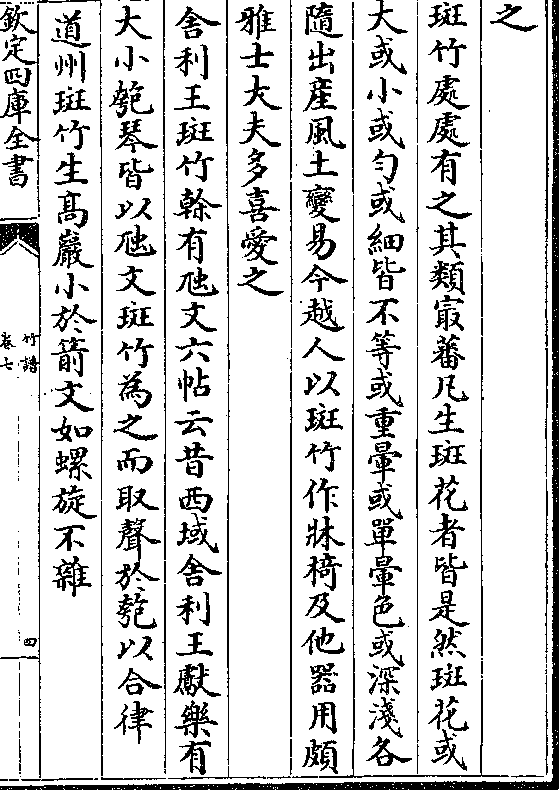 之
斑竹處處有之其類寂蕃凡生斑花者皆是然斑花或
大或小或勻或細皆不等或重暈或單暈色或深淺各
隨出産風土變易今越人以斑竹作牀椅及他器用頗
雅士大夫多喜愛之
舍利王斑竹榦有虵文六帖云昔西域舍利王獻樂有
大小匏琴皆以虵文斑竹為之而取聲於匏以合律
道州斑竹生髙巖小於箭文如螺旋不雜
欽定四庫全書
竹譜
卷七
四